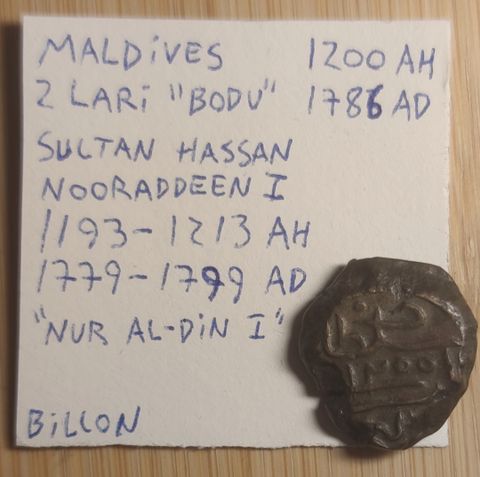 MALDiVES 1200 AH
2 LARi "BODU" 1786 AD
SULTAN HASSAN
NOORADDEEN I
1193-1213 AH
1779-1799 AD
"NUR AL-DiN I"
BiLLON
١٢٠٠